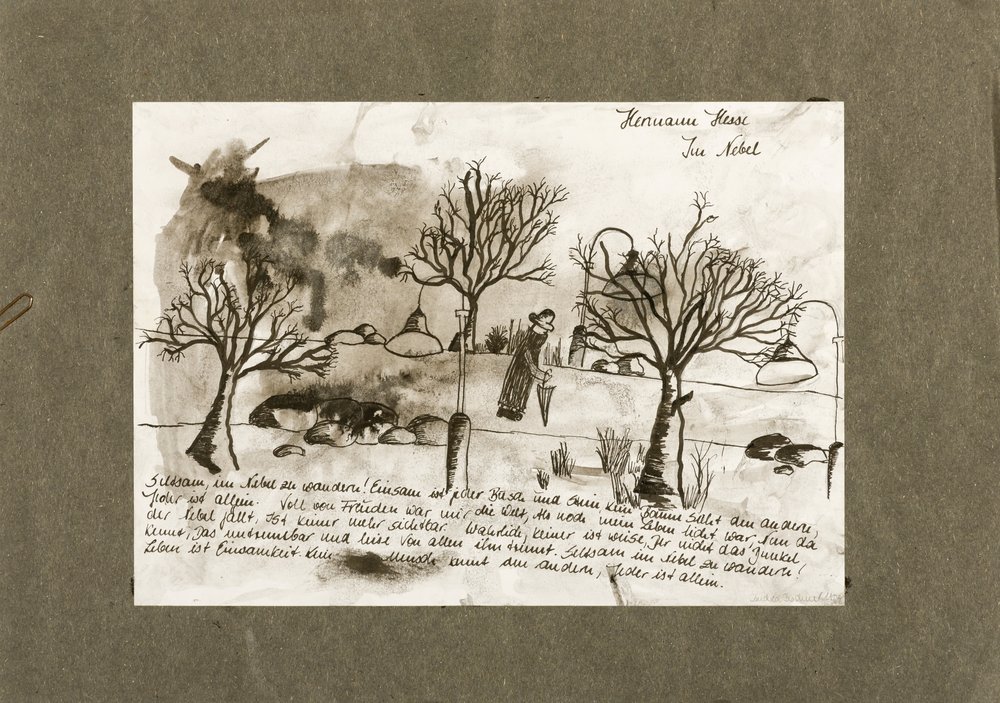 Hermann Hesse
Im Nebel
Seltsam, im Nebel zu wandern! Einsam ist jeder Busch und Stein Kein Baum Sieht den andern,
Jeder ist allein. Voll von Freunden war mir die Welt, Als noch mein Leben licht war Nun da
der Nebel fällt, Ist keiner mehr sichtbar. Wahrlich, keiner ist weise, Der nicht das Dunkel
kennt, Das untrennbar und leise Von allen ihn trennt. Seltsam im Nebel zu wandern!
Leben ist Einsamkeit Kein Mensch kennt den andern, Jeder ist allein.